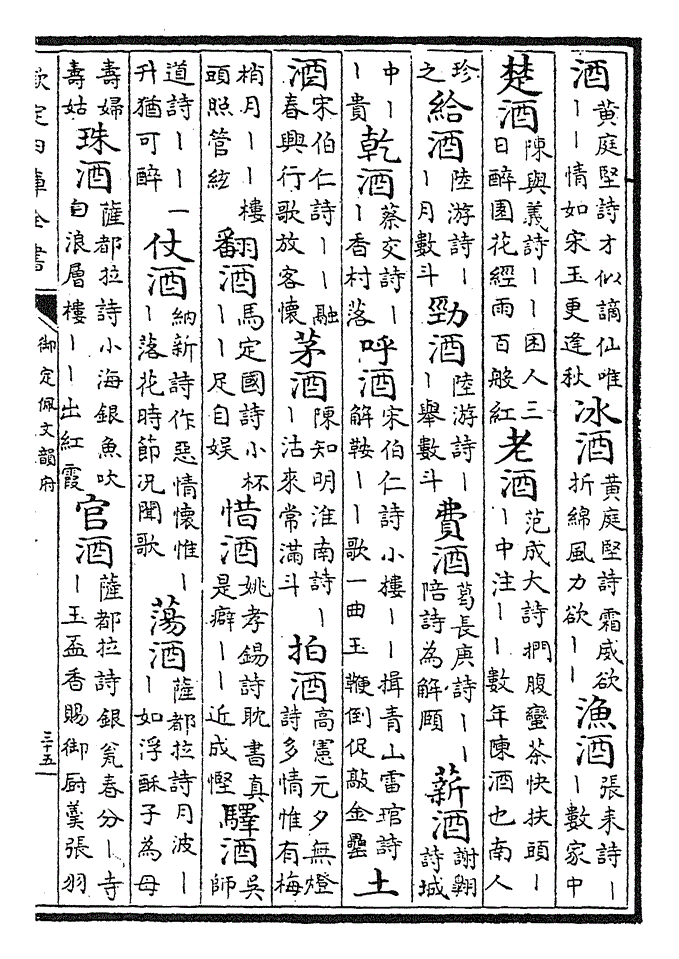 酒黄庭堅詩才似謫仙唯丨丨情如宋玉更逢秋冰酒黄庭堅詩霜威欲折綿風力欲丨丨漁酒張耒詩丨丨數家中
楚酒陳與義詩丨丨困人三日醉園花經雨百般紅老酒范成大詩捫腹蠻茶快扶頭丨丨中注丨丨數年陳酒也南人
珍之給酒陸游詩丨丨月數斗勁酒陸游詩丨丨舉數斗費酒葛長庚詩丨丨陪詩為解頤薪酒謝翱詩城
中丨丨貴乾酒蔡交詩丨丨香村落呼酒宋伯仁詩小樓丨丨揖青山雷琯詩解鞍丨丨歌一曲玉鞭倒促敲金罍土
酒宋伯仁詩丨丨融春興行歌放客懷茅酒陳知明淮南詩丨丨沽來常滿斗拍酒高憲元夕無燈詩多情惟有梅
梢月丨丨樓頭照管絃翻酒馬定國詩小杯丨丨足自娱惜酒姚孝錫詩耽書真是癖丨丨近成慳驛酒吳師
道詩丨丨一升猶可醉仗酒納新詩作惡情懷惟丨丨落花時節況聞歌蕩酒薩都拉詩月波丨丨如浮酥子為母
壽婦壽姑珠酒薩都拉詩小海銀魚吹白浪層樓丨丨出紅霞官酒薩都拉詩銀瓮春分丨寺丨玉盃香賜御厨羹張羽
欽定四庫全書
御定佩文韻府
三十五